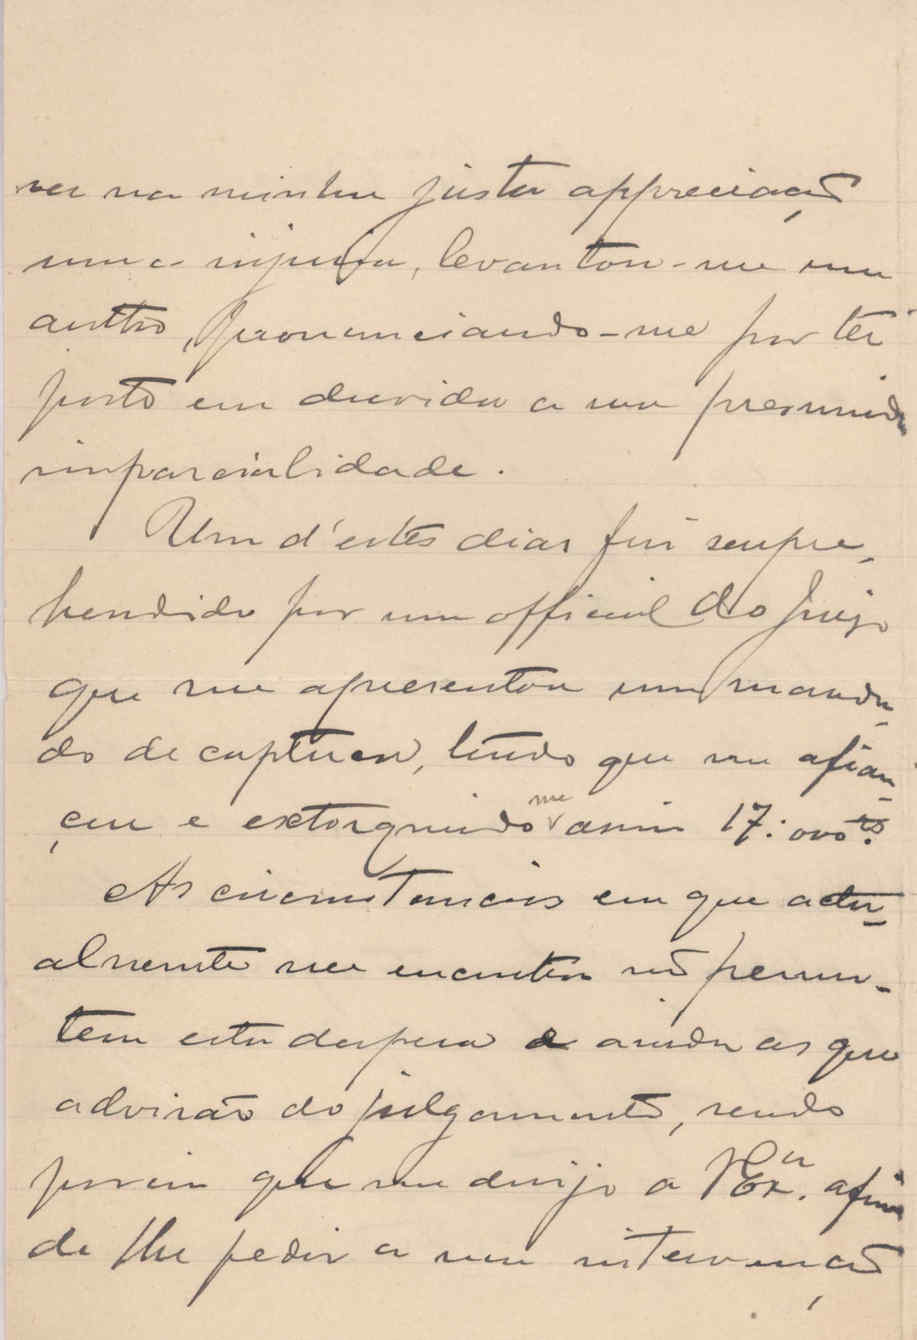 ver na minha justa appreciação
uma injuria, levantou-me um
auttro, pronunciando-me por ter
posto em duvida a sua presumida
imparcialidade.
Um d'estes dias fui surpre-
hendido por um official do Juizo
que me apresentou um manda-
do de captura, tendo que me afian-
çar e extorquindo me assim 17:000rs.
As circumstancias em que actu-
almente me encontro não permit-
tem esta despesa e ainda as que
advirão do julgamento, sendo
porém que me dirijo a VExa. afim
de lhe pedir a sua intervenção